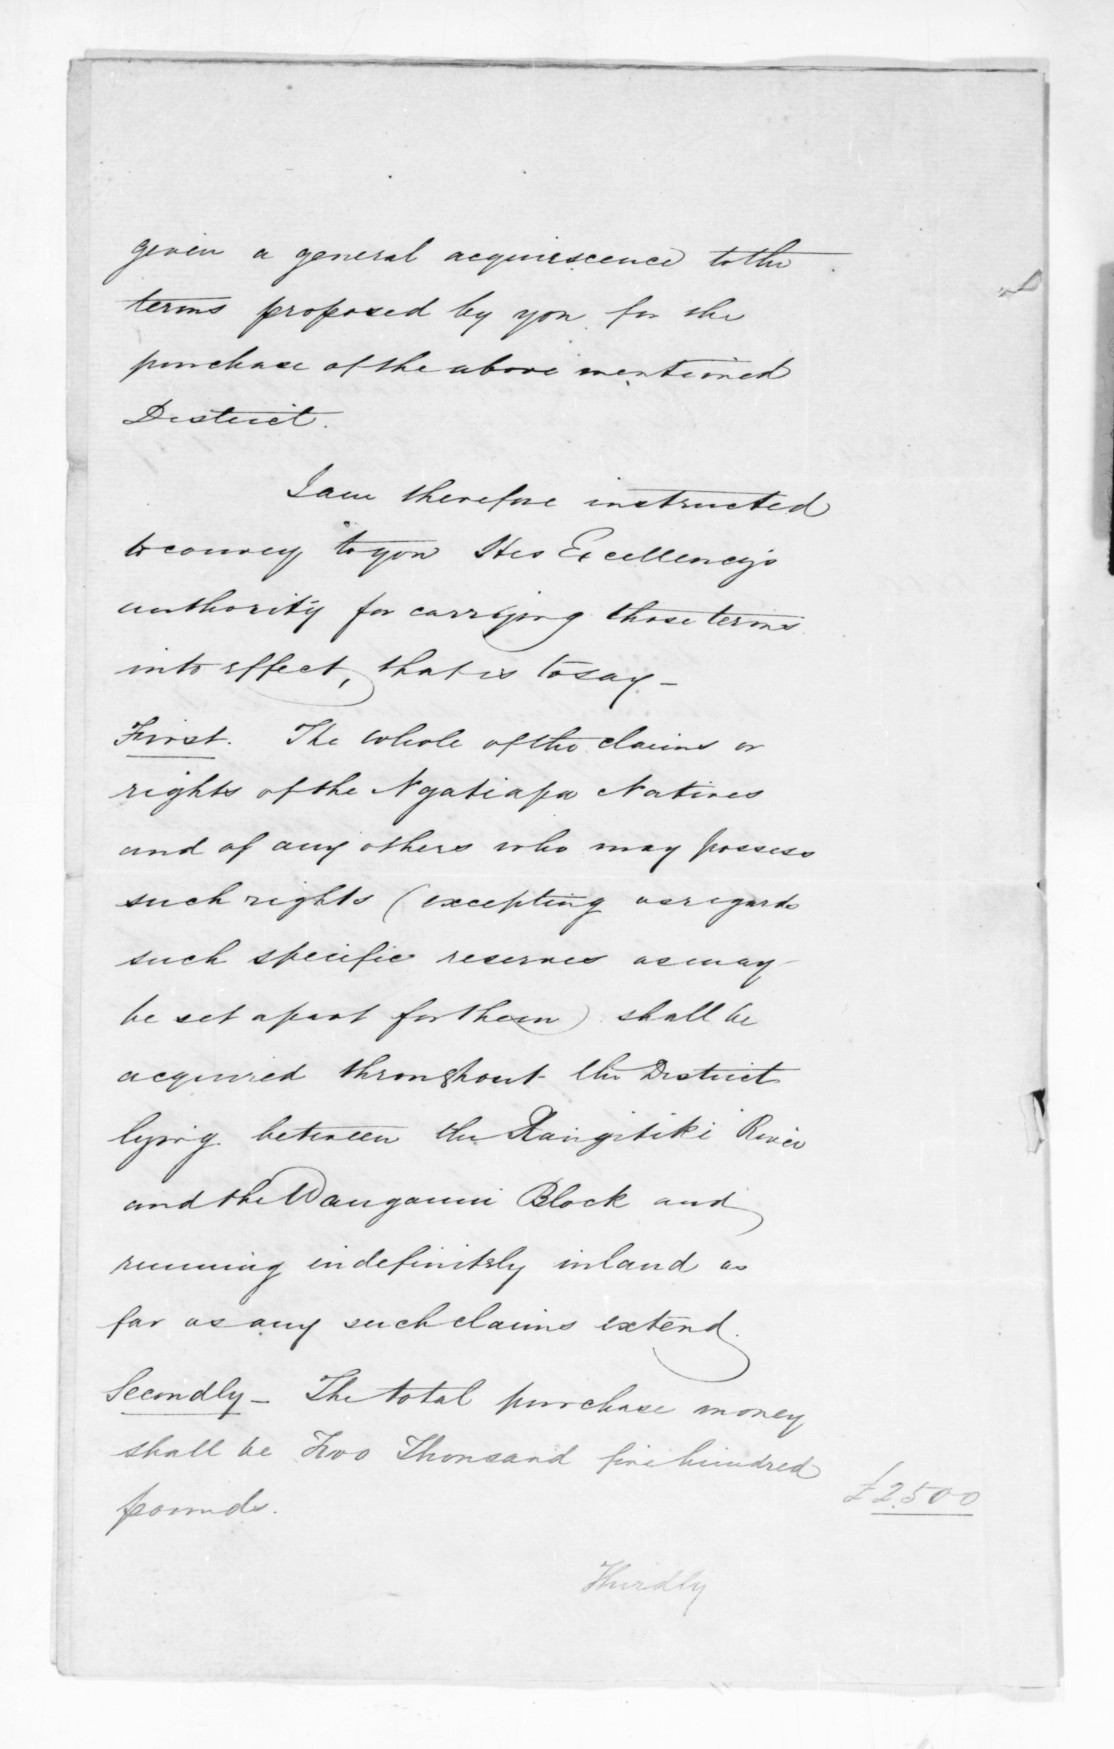 given a general acquiescence to the
terms proposed by you for the
purchase of the above mentioned
District.
I am therefore instructed
to convey to you His Excellency's
authority for carrying those terms
into effect, that is to say –
First. The whole of the claims or
rights of the Ngatiapa Natives
and of any others who may possess
such rights (excepting as regards
such specific reserves as may
be set apart for them) shall be
acquired throughout the District
lying between the Rangitiki River
and the Wanganui Block and
running indefinitely inland as
far as any such claims extend.
Secondly – The total purchase money
shall be Two Thousand five hundred
pounds.
£2.500
Thirdly